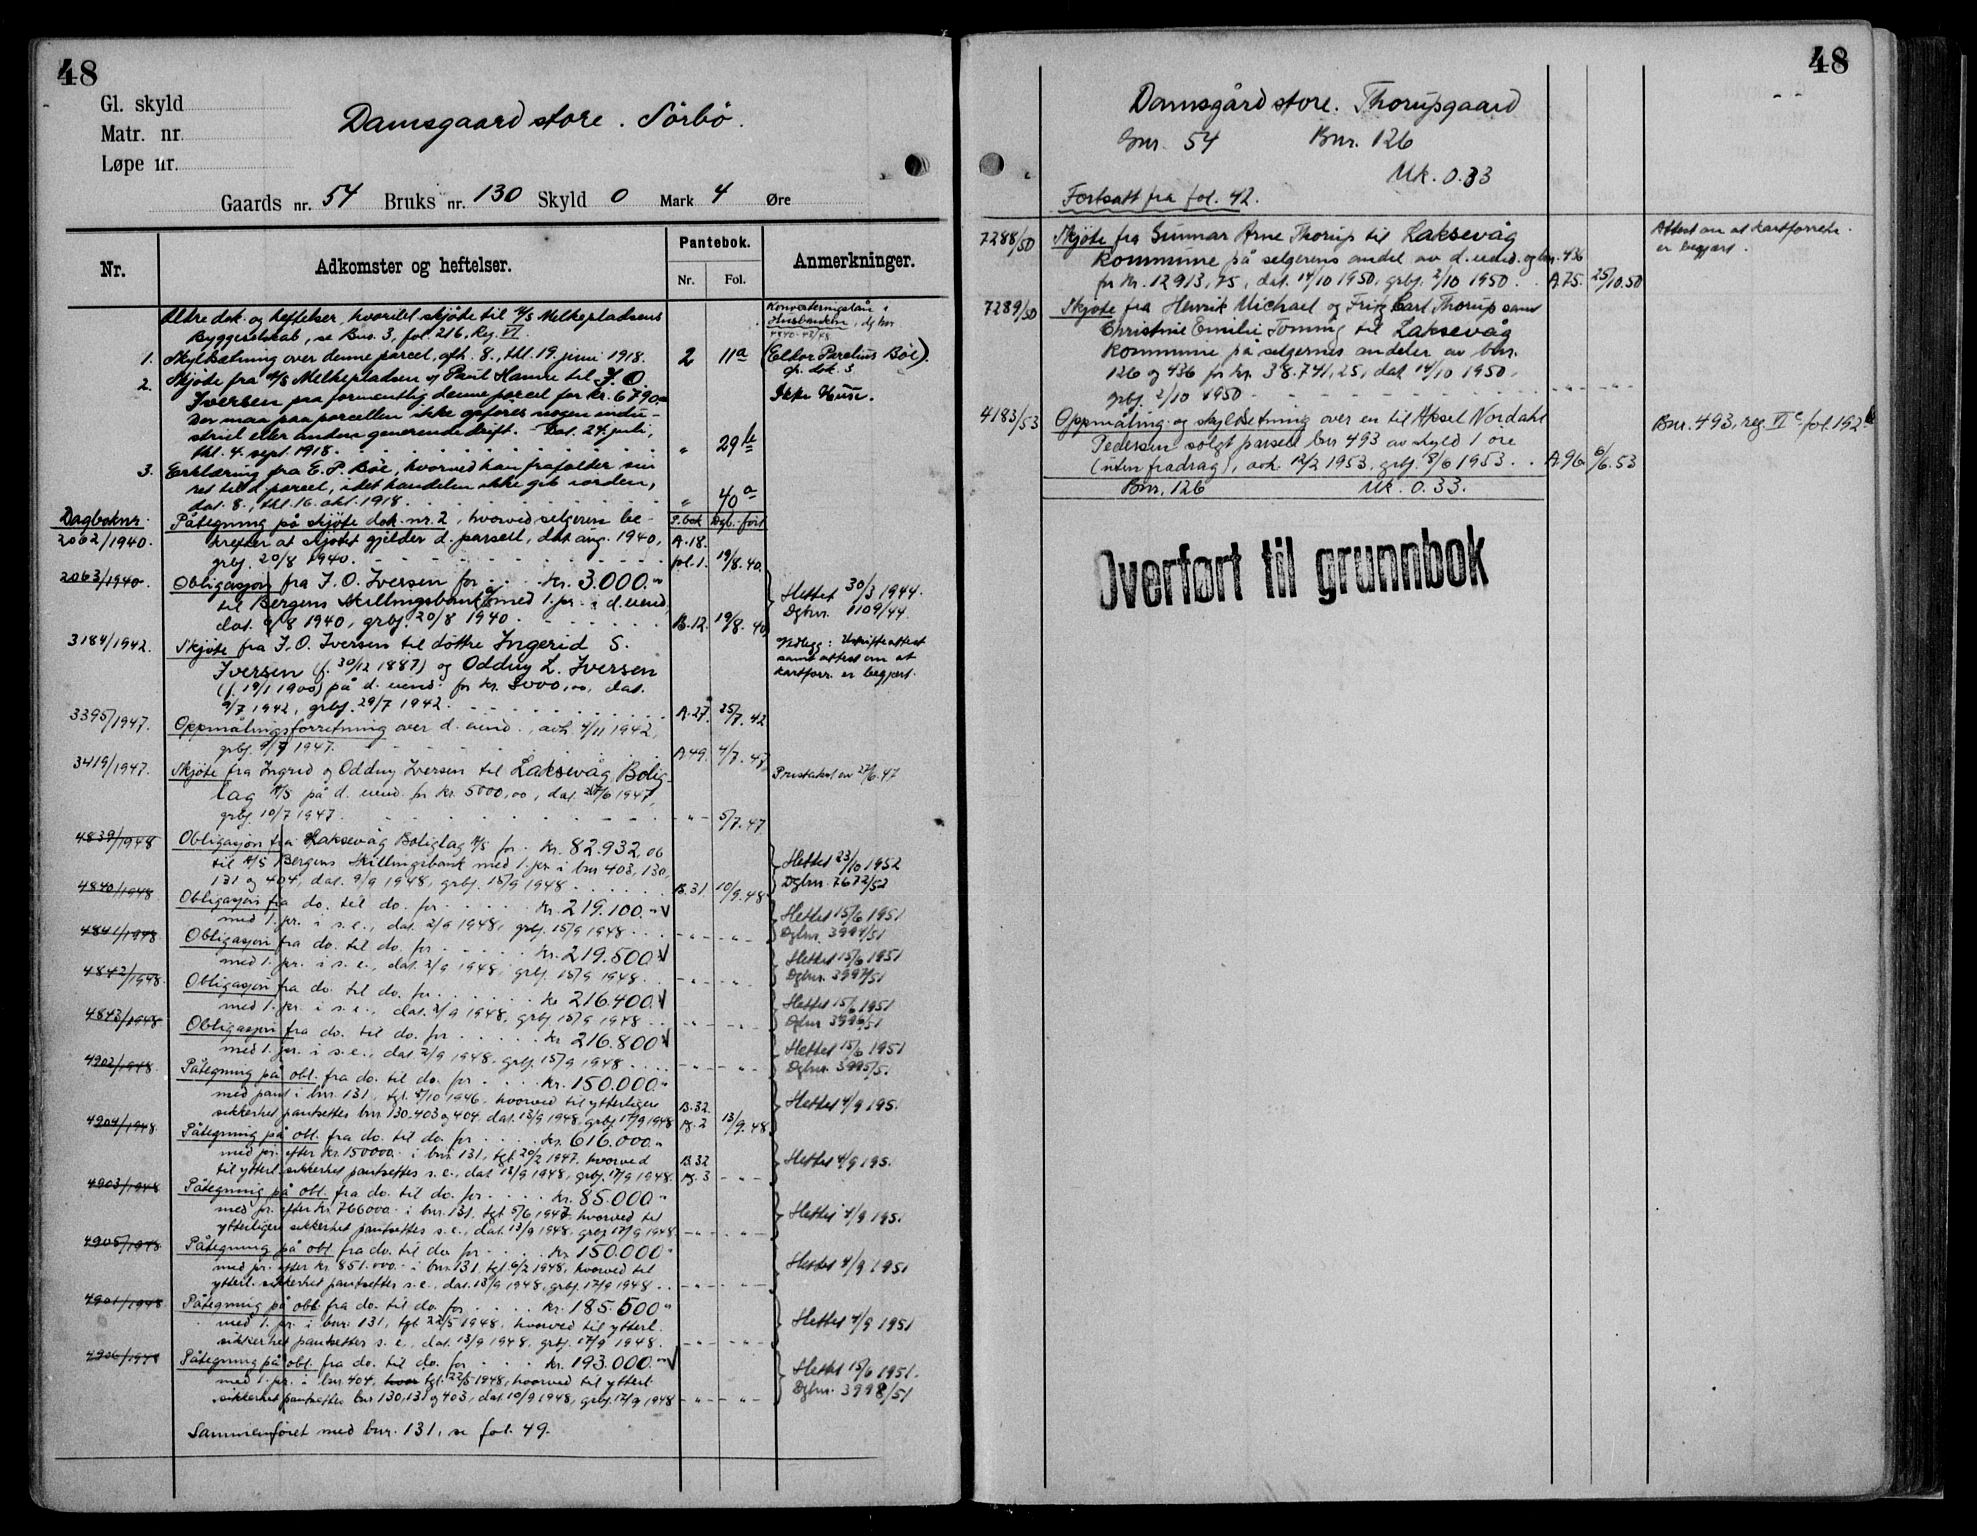 48
Gl. skyld
Matr. nr.
Løpe nr.
Damsgaard store. Sørbø.
Gaards nr. 54 Bruks nr. 130 Skyld 0 Mark 4 Øre
Nr. Adkomster og heftelser. Pantebok. Nr. Fol. Anmerkninger.
Eldre dok. og heftelser, hvoriblt skjøte til A/S Melkepladsens
Byggeselskab, se Bns. 3, fol. 216, Reg. VI.
Konverteringslån i
Husbanken, dgbnr
4840-43/48
1. Skyldsetning over denne parcel, afh. 8., thl. 19. juni 1918. 2 11a (Ellor Parelius Böe).
cfr. dok. 3
2. Skjøte fra A/S Melkepladsen v/ Paul Hamre til J. O.
Iversen paa formentlig denne parcel for kr. 6790.
Ikke Huse.
Der maa paa parcellen ikke opføres nogen indu-
striel eller anden generende drift. Dat. 24. juli,
thl. 4. sept. 1918. " 29b
3. Erklæring fra E. P. Böe, hvorved han frafalder sin
ret til d. parcel, idet handelen ikke gik i orden,
dat. 8., thl. 16. okt. 1918. " 40a
Dagboknr. P.bok Dgb. ført
2062/1940. Påtegning på skjøte dok. nr. 2, hvorved selgeren be-
krefter at skjøtet gjelder d. parsell, dat. aug. 1940, A.18.
grbj. 20/8 1940. fol. 1. 19/8. 40.
2063/1940. Obligasjon fra J. O. Iversen for kr. 3.000.-
til Bergens Skillingsbank med 1. pr. i d. eiend.
dat. 9/8 1940, grbj. 20/8 1940. B.12. 19/8. 40.
Slettet 30/3 1944.
Dgbnr. 1109/44.
3184/1942. Skjøte fra J. O. Iversen til døttre Ingerid S.
Iversen (f. 30/12 1887) og Oddny L. Iversen
(f. 19/1 1900) på d. eiend. for kr. 3000,00, dat.
9/7 1942, grbj. 29/7 1942. A.27. 25/7. 42
Vedlegg: Utskifteattest
samt attest om at
kartforr. er begjært.
3395/1947. Oppmålingsforretning over d. eiend., avh. 4/11 1942,
grbj. 9/7 1947. A.49. 4/7. 47.
3419/1947. Skjøte fra Ingrid og Oddny Iversen til Laksevåg Bolig-
lag A/S på d. eiend. for kr. 5000,00, dat. 28/6 1947,
grbj. 10/7 1947. - " - 5/7. 47.
Pristakst av 27/6. 47
4839/1948 Obligasjon fra Laksevåg Boliglag A/S for kr. 82.932,06
til A/S Bergens Skillingsbank med 1. pr. i bnr 403, 130,
131 og 404, dat. 9/9 1948, grbj. 15/9 1948. B.31 10/9. 48
Slettet 23/10 1952
Dgbnr. 7672/52
4840/1948 Obligasjon fra do. til do. for kr. 219.100.-
med 1. pr. i s. e., dat. 2/9 1948, grbj. 15/9 1948.
Slettet 15/6 1951
Dgbnr. 3994/51
4841/1948 Obligasjon fra do. til do. for kr. 219.500
med 1. pr. i s. e., dat. 2/9 1948, grbj. 15/9 1948.
Slettet 15/6 1951
Dgbnr. 3997/51
4842/1948. Obligasjon fra do. til do. for kr 216.400.
med 1. pr. i s. e., dat. 2/9 1948, grbj 15/9 1948
Slettet 15/6 1951
Dgbnr 3996/51
4843/1948 Obligasjon fra do. til do. for kr 216.800
med 1. pr. i s. e., dat 2/9 1948, grbj. 15/9 1948
Slettet 15/6 1951
Dgbnr. 3995/51
4902/1948. Påtegning på obl. fra do. til do. for kr. 150.000.-
med pant i bnr. 131, tgl. 5/10 1946, hvorved til ytterligere
sikkerhet pantsettes bnr 130, 403 og 404 dat. 13/9 1948, grbj. 17/9 1948 B.32. Pg. 2 13/9. 48
Slettet 4/9 195.
4904/1948 Påtegning på obl. fra do. til do. for kr. 616.000.-
med pr. efter kr. 150000.- i bnr. 131, tgl. 20/2 1947, hvorved
til ytterl. sikkerhet pantsettes s. e., dat 13/9 1948, grbj. 17/9 1948. B.32 Pg. 3
Slettet 4/9 195.
4903/1948 Påtegning på obl. fra do. til do. for kr. 85.000.-
med pr. efter kr 766000.- i bnr. 131, tgl 5/6 1947, hvorved til
ytterligere sikkerhet pantsettes s. e., dat. 13/9 1948, grbj 17/9 1948.
Slettet 4/9 195.
4905/1948 Påtegning på obl. fra do. til do. for kr 150.000
med pr. efter kr 851.000.- i bnr. 131, tgl. 6/2 1948, hvorved til
ytterl. sikkerhet pantsettes s. e., dat. 13/9 1948, grbj. 17/9 1948.
Slettet 4/9 1951
4901/1948 Påtegning på obl. fra do. til do. for kr. 185.500
med 1. pr. i bnr. 131, tgl 22/5 1948, hvorved til ytterl.
sikkerhet pantsettes s. e., dat. 13/9 1948, grbj. 17/9 1948.
Slettet 4/9 1951
4906/1948 Påtegning på obl. fra do. til do. for kr. 193.000.-
med 1. pr. i bnr 404, hvor tgl. 22/5 1948, hvorved til ytterl.
sikkerhet pantsettes bnr 130, 131 og 403, dat. 10/9 1948, grbj. 17/9 1948
Slettet 15/6 1951.
Dgbnr. 3998/51
Sammenføiet med bnr. 131, se fol. 49.
48
Damsgård store. Thorupgaard
Gnr. 54 Bnr. 126
Mk. 0.33
Fortsatt fra fol. 42.
7288/50 Skjøte fra Gunnar Arne Thorup til Laksevåg
kommune på selgerens andel av d. eiend. og bnr. 436
for kr. 12913,75, dat. 14/10 1950, grbj. 2/10 1950. A.75. 25/10.50
Attest om at kartforretn.
er begjært.
7289/50 Skjøte fra Henrik Michael og Fritz Carl Thorup samt
Christine Emilie Tonning til Laksevåg
kommune på selgernes andeler av bnr.
126 og 436 for kr. 38.741,25, dat 14/10 1950,
grbj. 2/10 1950
4183/53 Oppmåling- og skyldsetning over en til Aksel Nordahl
Pedersen solgt parsell bnr 493 av skyld 1 øre
(uten fradrag), avh. 12/2 1953, grbj. 8/6 1953. A.96. 6/6.53
Bnr. 493, reg. VI c fol. 192 b
Bnr. 126 Mk. 0.33.
Overført til grunnbok